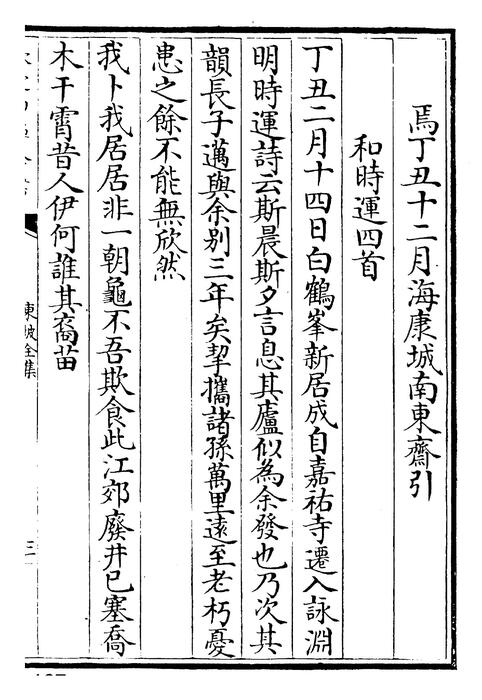 焉丁丑十二月海康城南東齋引
和時運四首
丁丑二月十四日白鶴峯新居成自嘉祐寺遷入詠淵
明時運詩云斯晨斯夕言息其廬似為余發也乃次其
韻長子邁與余别三年矣挈攜諸孫萬里遠至老朽憂
患之餘不能無欣然
我卜我居居非一朝龜不吾欺食此江郊廢井已塞喬
木干霄昔人伊何誰其裔苗
東坡全集
三